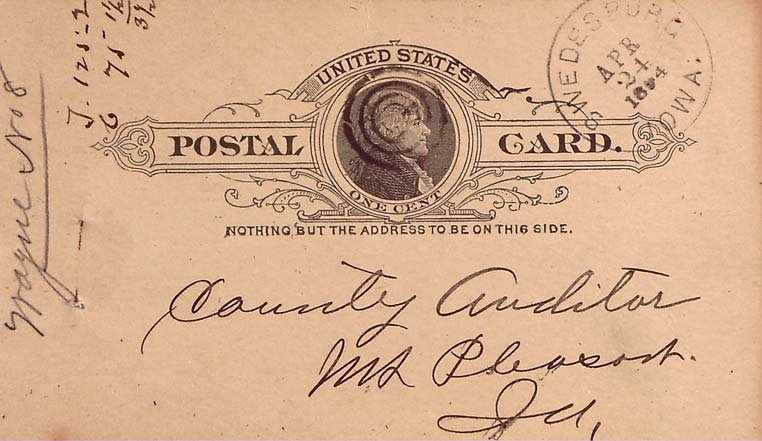 J. 125-2
6 75-1½
3½
Wayne No 8
UNITED STATES
POSTAL CARD.
ONE CENT
NOTHING BUT THE ADDRESS TO BE ON THIS SIDE.
SWEDESBURG IOWA.
APR
24
1894
County Auditor
Mt Pleasant.
Ia,